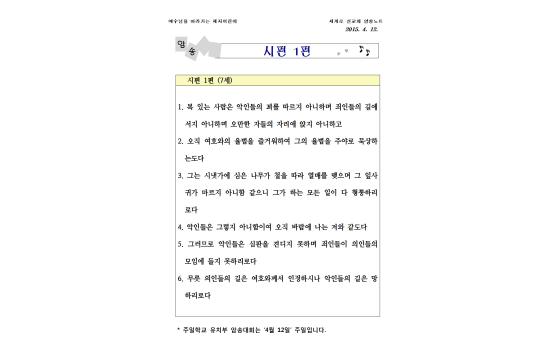 예수님을 따라가는 예지어린이
세계로 선교회 암송노트
2015. 4. 12.
암송
시편 1편
시편 1편 (7세)
1. 복 있는 사람은 악인들의 꾀를 따르지 아니하며 죄인들의 길에
서지 아니하며 오만한 자들의 자리에 앉지 아니하고
2. 오직 여호와의 율법을 즐거워하여 그의 율법을 주야로 묵상하
는도다
3. 그는 시냇가에 심은 나무가 철을 따라 열매를 맺으며 그 잎사
귀가 마르지 아니함 같으니 그가 하는 모든 일이 다 형통하리
로다
4. 악인들은 그렇지 아니함이여 오직 바람에 나는 겨와 같도다
5. 그러므로 악인들은 심판을 견디지 못하며 죄인들이 의인들의
모임에 들지 못하리로다
6. 무릇 의인들의 길은 여호와께서 인정하시나 악인들의 길은 망
하리로다
* 주일학교 유치부 암송대회는 '4월 12일' 주일입니다.